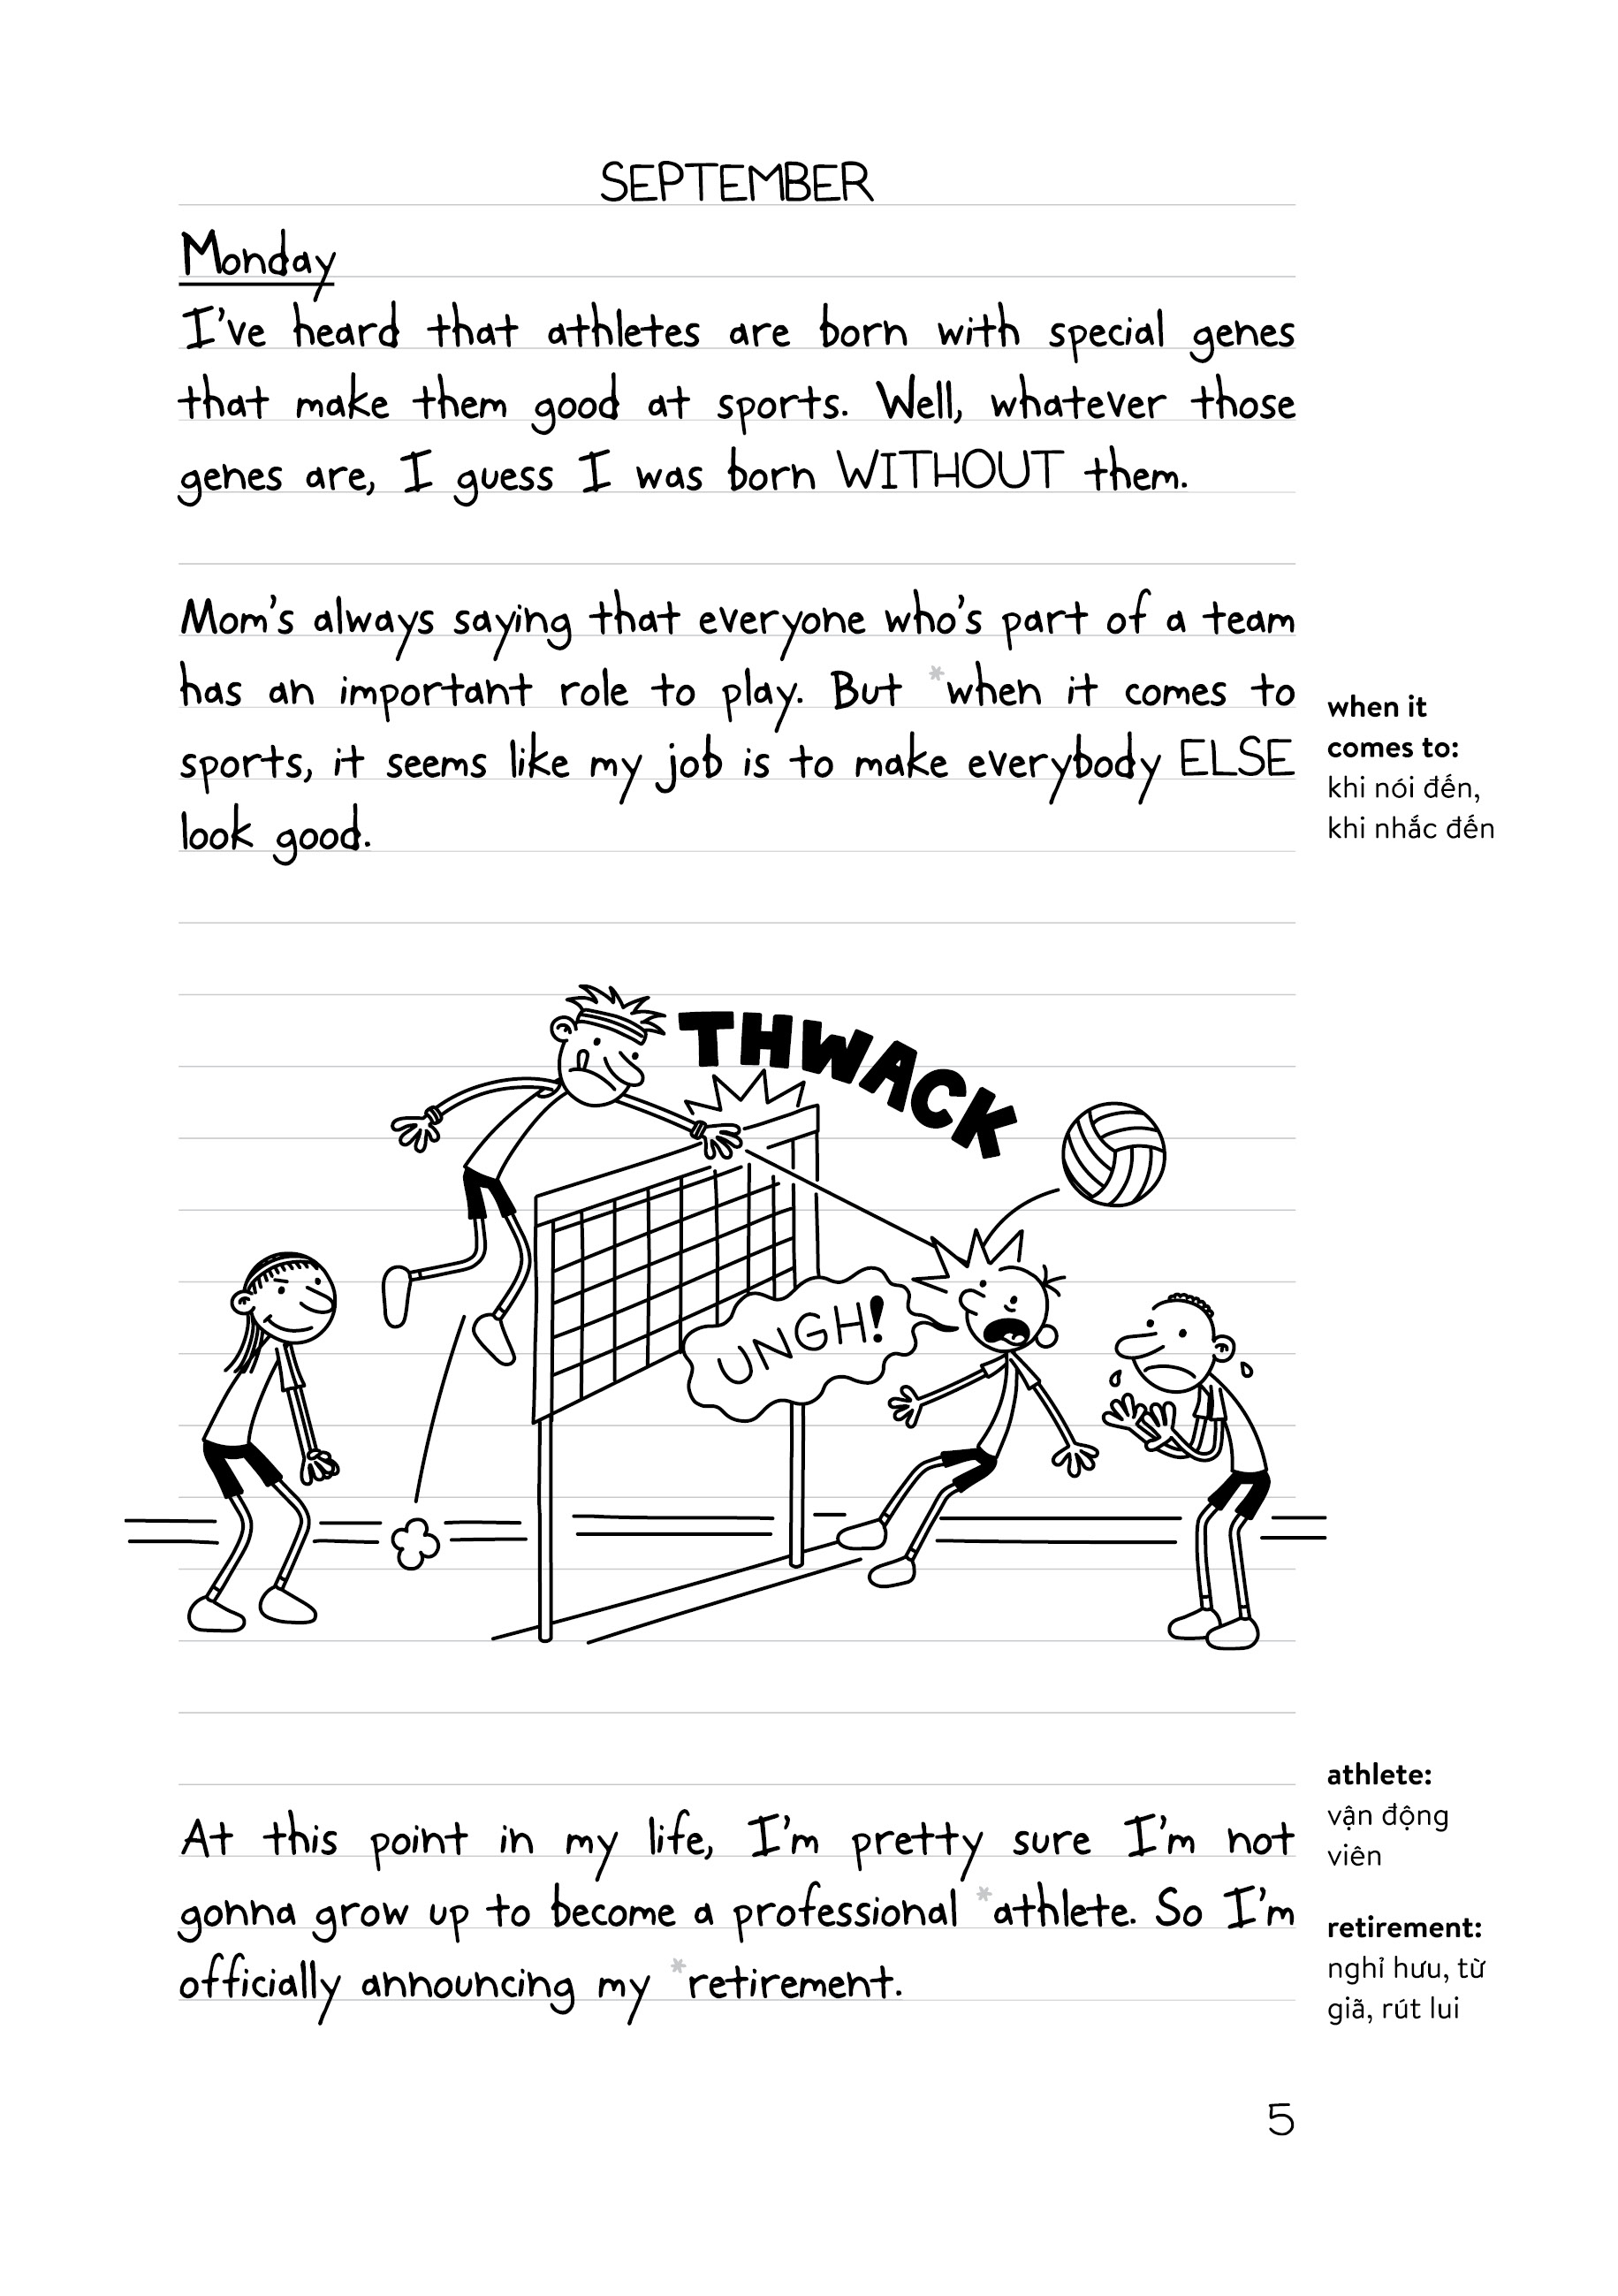 SEPTEMBER
Monday
I've heard that athletes are born with special genes
that make them good at sports. Well, whatever those
genes are, I guess I was born WITHOUT them.
Mom's always saying that everyone who's part of a team
has an important role to play. But *when it comes to
sports, it seems like my job is to make everybody ELSE
look good.
when it
comes to:
khi nói đến,
khi nhắc đến
THWACK
UNGH!
At this point in my life, I'm pretty sure I'm not
gonna grow up to become a professional *athlete. So I'm
officially announcing my *retirement.
athlete:
vận động
viên
retirement:
nghỉ hưu, từ
giã, rút lui
5